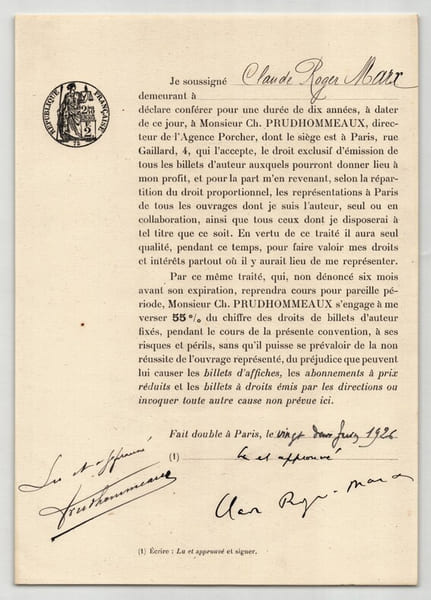 RÉPUBLIQUE FRANÇAISE
Je soussigné Claude Roger Marx
demeurant à
déclare conférer pour une durée de dix années, à dater
de ce jour, à Monsieur Ch. PRUDHOMMEAUX, direc-
teur de l'Agence Porcher, dont le siège est à Paris, rue
Gaillard, 4, qui l'accepte, le droit exclusif d'émission de
tous les billets d'auteur auxquels pourront donner lieu à
mon profit, et pour la part m'en revenant, selon la répar-
tition du droit proportionnel, les représentations à Paris
de tous les ouvrages dont je suis l'auteur, seul ou en
collaboration, ainsi que tous ceux dont je disposerai à
tel titre que ce soit. En vertu de ce traité il aura seul
qualité, pendant ce temps, pour faire valoir mes droits
et intérêts partout où il y aurait lieu de me représenter.
Par ce même traité, qui, non dénoncé six mois
avant son expiration, reprendra cours pour pareille pé-
riode, Monsieur Ch. PRUDHOMMEAUX s'engage à me
verser 55 % du chiffre des droits de billets d'auteur
fixés, pendant le cours de la présente convention, à ses
risques et périls, sans qu'il puisse se prévaloir de la non
réussite de l'ouvrage représenté, du préjudice que peuvent
lui causer les billets d'affiches, les abonnements à prix
réduits et les billets à droits émis par les directions ou
invoquer toute autre cause non prévue ici.
Fait double à Paris, le vingt deux 1926
(1) Lu et approuvé
Lu et approuvé
Prudhommeaux
Claude Roger-Marx
(1) Écrire : Lu et approuvé et signer.